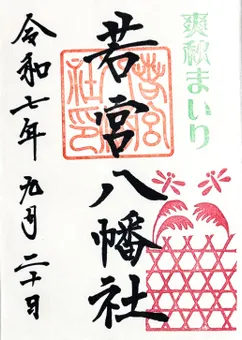 爽秋まいり
若宮八幡社
若宮社印
令和七年 九月 二十日